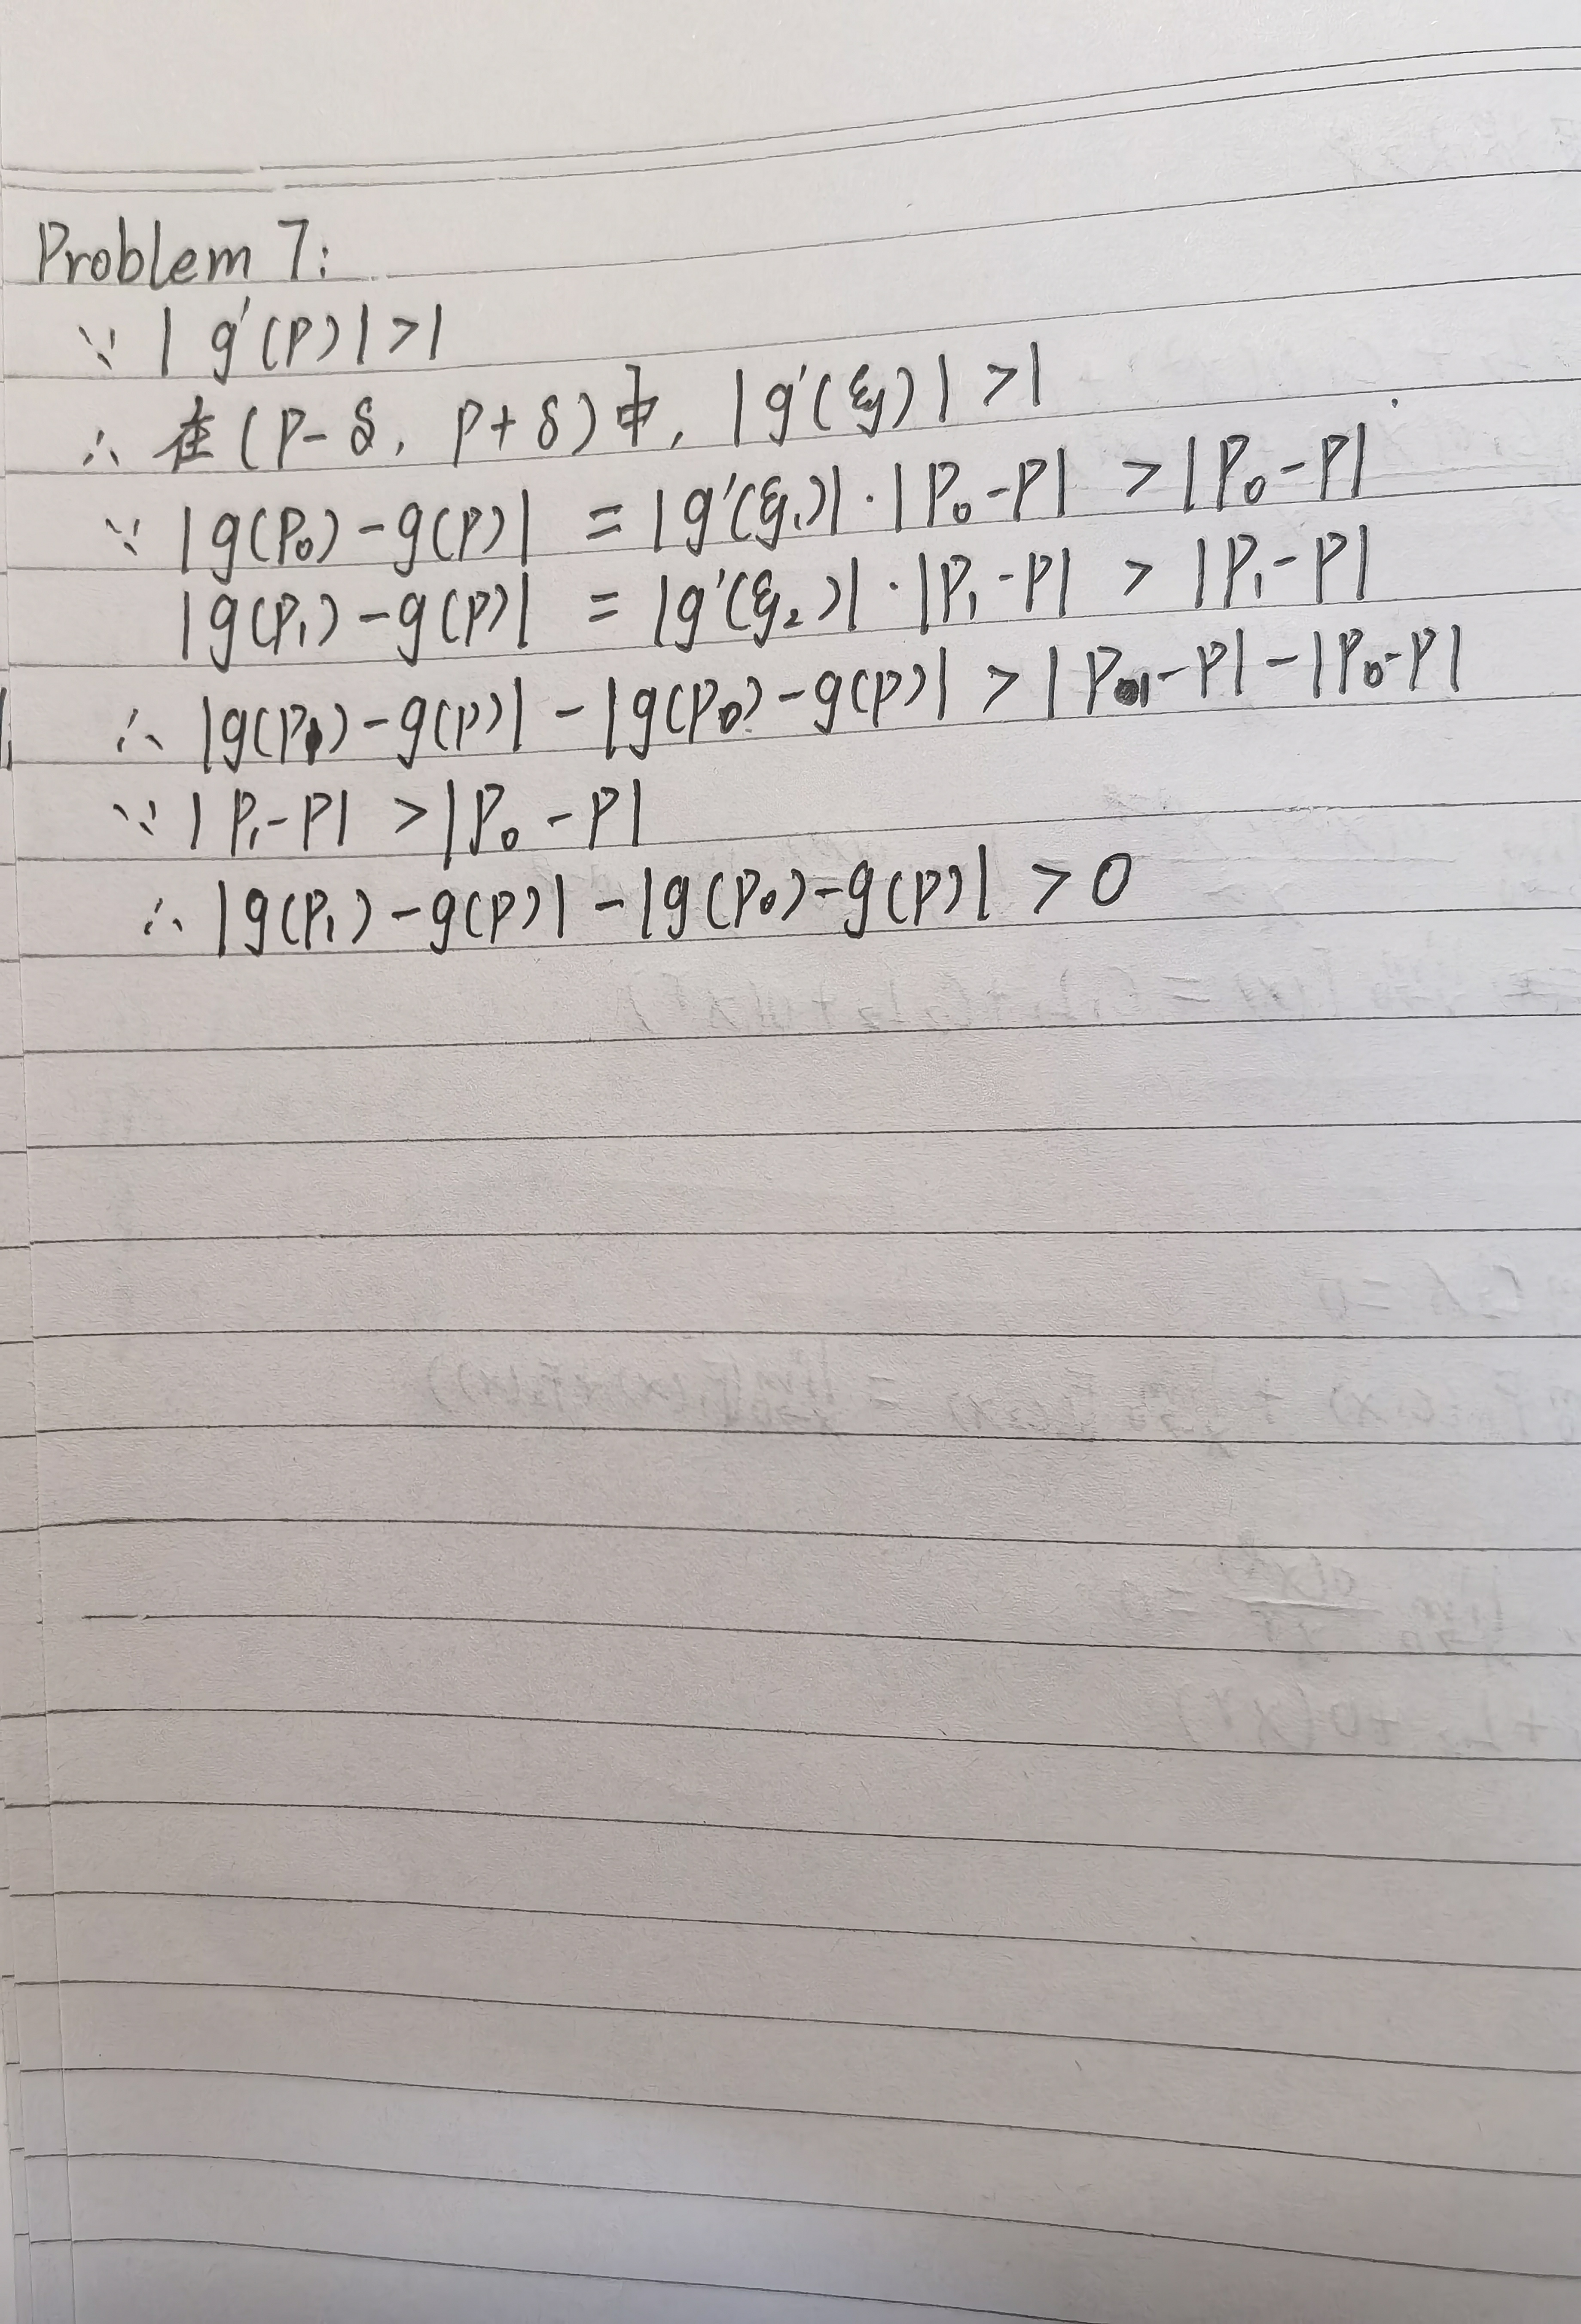 Problem 7:
∵ |g'(p)|>1
∴ 在(p-δ, p+δ)中, |g'(ξ)|>1
∵ |g(p₀)-g(p)| = |g'(ξ₁)|·|p₀-p| > |p₀-p|
|g(p₁)-g(p)| = |g'(ξ₂)|·|p₁-p| > |p₁-p|
∴ |g(p₁)-g(p)|-|g(p₀)-g(p)| > |p₁-p|-|p₀-p|
∵ |p₁-p| > |p₀-p|
∴ |g(p₁)-g(p)|-|g(p₀)-g(p)| > 0